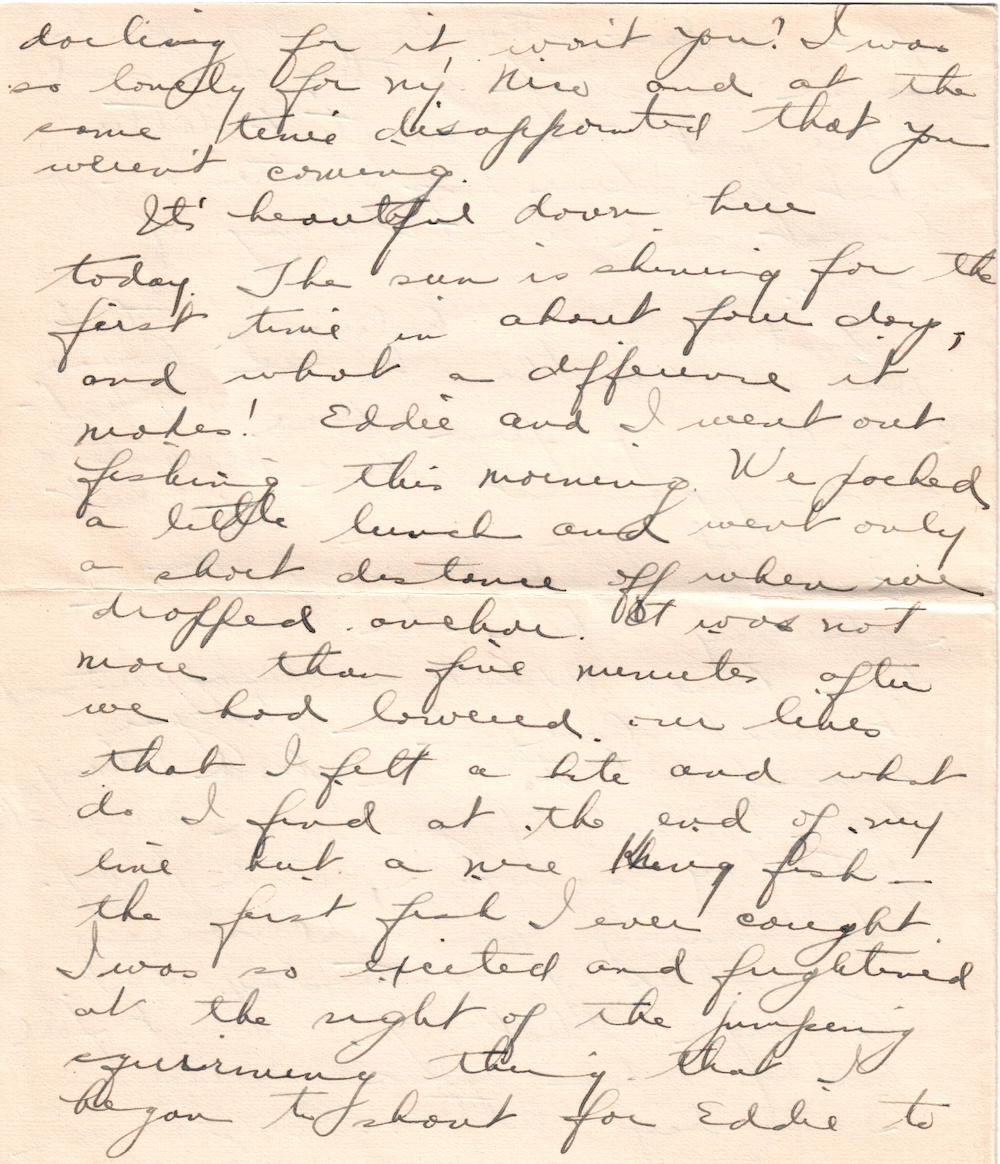 darling for it won't you? I was
so lonely for my Nico and at the
same time disappointed that you
weren't coming.
It's beautiful down here
today. The sun is shining for the
first time in about four days,
and what a difference it
makes! Eddie and I went out
fishing this morning. We packed
a little lunch and went only
a short distance off when we
dropped anchor. It was not
more than five minutes after
we had lowered our lines
that I felt a bite and what
do I find at the end of my
line but a nice King fish —
the first fish I ever caught.
I was so excited and frightened
at the sight of the jumping
squirming thing that I
began to shout for Eddie to